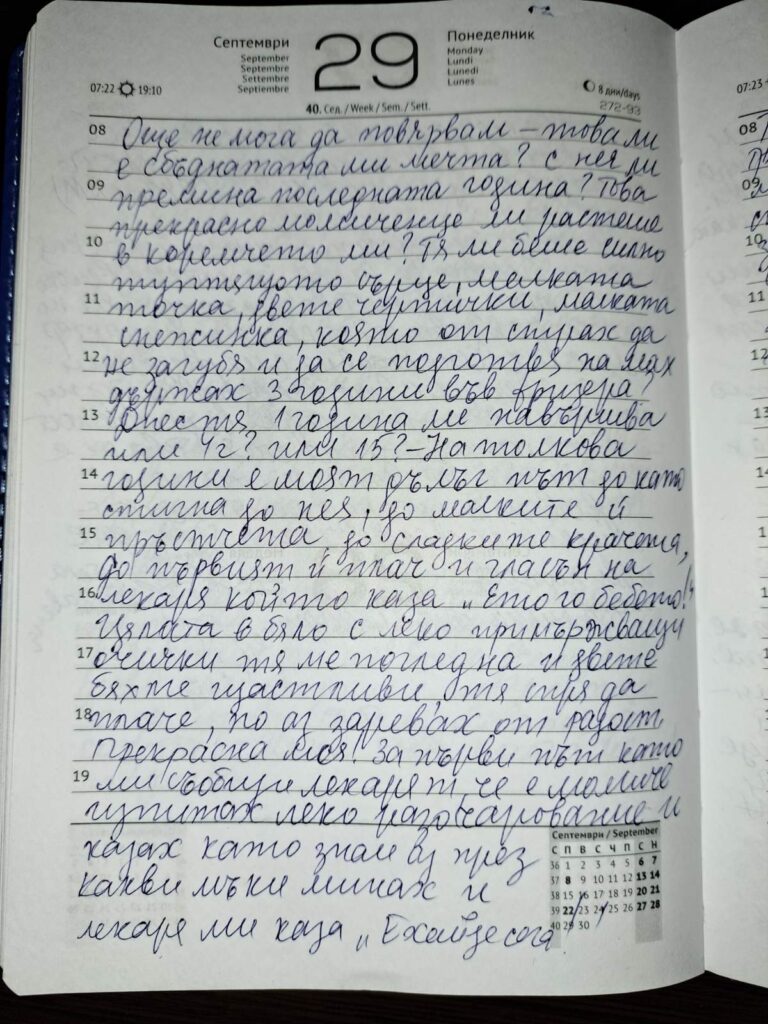 Септември
September
Septembre
Settembre
Septiembre
29
Понеделник
Monday
Lundi
Lunedi
Lunes
07:22 19:10
40. Сед. / Week / Sem. / Sett.
8 дни/days
272-93
08 Още не мога да повярвам – това ли
е сбъднатата ми мечта? с нея ли
09 премина последната година? Това
прекрасно момиченце ли растеше
10 в коремчето ми? Тя ли беше силно
туптящото сърце, малката
11 точка, двете чертички, малката
снежинка, която от страх да
12 не загубя и да се подготвя на мах
държах 3 години във фризера?
13 Днес тя 1 година ли навършва
или 1г? или 15? – На толкова
14 години е моят дълъг път до като
стигна до нея, до малките й
15 пръстчета, до сладките крачета,
до първият й плач и гласън на
16 лекаря който каза „Ето го бебото!"
Цялата в бяло с леко примържващи
17 очички тя ме погледна и двете
бяхме щастливи, тя спря да
18 плаче, но аз заревах от радост.
Прекрасна моя! За първи път като
19 ми съобщи лекарят, че е момиче
изпитах леко разочарование и
казах като знам аз през
какви мъки минах и
лекаря ми каза „Ехайде сега
Септември / September
С П В С Ч П С Н
36 1 2 3 4 5 6 7
37 8 9 10 11 12 13 14
38 15 16 17 18 19 20 21
39 22 23 24 25 26 27 28
40 29 30
07:23
08
09
10
11
12
13
14
15
16
17
18
19